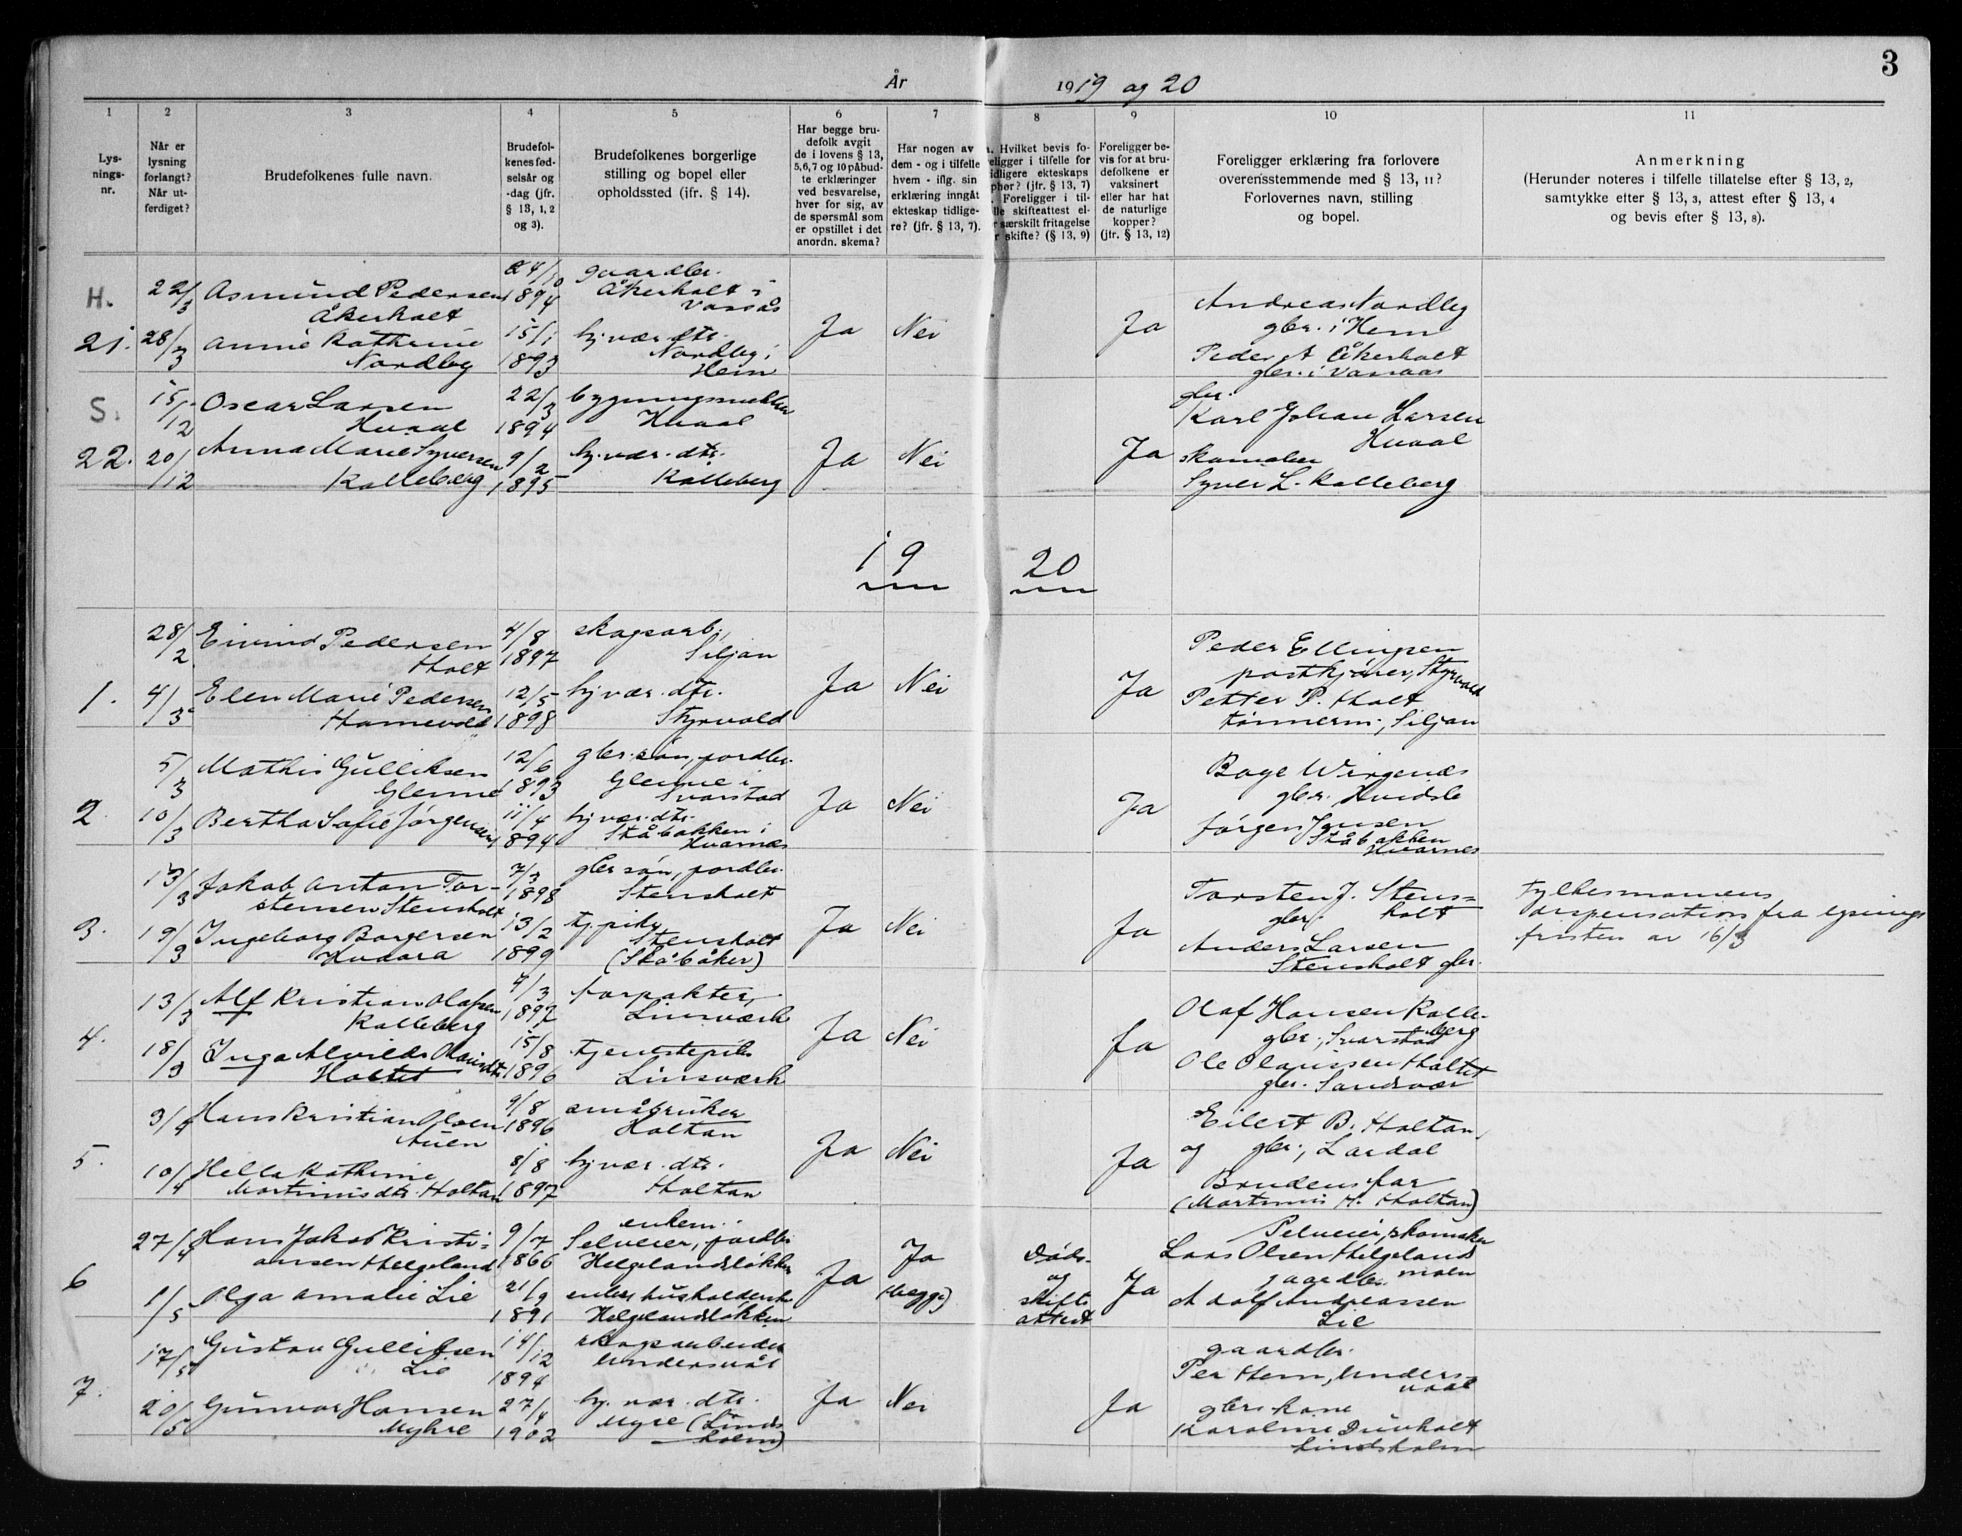 3
År 1919 og 20
1 2 3 4 5 6 7 8 9 10 11
Lysnings-nr.
Når er lysning forlangt? Når utferdiget?
Brudefolkenes fulle navn.
Brudefolkenes fødselsår og -dag (jfr. § 13, 1, 2 og 3).
Brudefolkenes borgerlige stilling og bopel eller opholdssted (jfr. § 14).
Har begge brudefolk avgit de i lovens § 13, 5,6,7 og 10 påbudte erklæringer ved besvarelse, hver for sig, av de spørsmål som er opstillet i det anordn. skema?
Har nogen av dem - og i tilfelle hvem - iflg. sin erklæring inngått ekteskap tidligere? (jfr. § 13, 7).
Hvilket bevis foreligger i tilfelle for tidligere ekteskaps ophør? (jfr. § 13, 7) Foreligger i tilfelle skifteattest eller særskilt fritagelse for skifte? (§ 13, 9)
Foreligger bevis for at brudefolkene er vaksinert eller har hat de naturlige kopper? (jfr. § 13, 12)
Foreligger erklæring fra forlovere overensstemmende med § 13, 11? Forlovernes navn, stilling og bopel.
Anmerkning
(Herunder noteres i tilfelle tillatelse efter § 13, 2, samtykke efter § 13, 3, attest efter § 13, 4 og bevis efter § 13, 8).
H. 22/3 Asmund Pedersen Åkerholt 24/10 1894 gaardbr. Åkerholt i Vassås
21. 28/3 Annie Kathrine Nordby 15/1 1893 hj.vær. dtr. Nordby i Hem Ja Nei Ja
Andreas Nordby
gbr. i Hem
Peder A Åkerholt
gbr. i Vassaas
S. 15/12 Oscar Larsen Hvaal 22/3 1894 Hvaal
22. 20/12 Anna Marie Syversen Kolleberg 9/2 1895 hj.vær. dtr. Kolleberg Ja Nei Ja
gbr.
Karl Johan Larsen
Hvaal
skomaker
Syver L. Kolleberg
19 20
28/2 Eivind Pedersen Holt 4/8 1897 skogsarb., Siljan
1. 4/3 Elen Marie Pedersen 12/5 1898 hj.vær. dtr. Styrvold Ja Nei Ja
Peder Ellingsen
postkjører, Styrvold
Petter P. Holt
tømmerm., Siljan
5/3 Mathis Gulliksen Glenne 12/6 1893 gbr. søn, jordbr. Glenne i Svarstad
2. 10/3 Bertha Sofie Jørgensen 11/4 1894 hj.vær. dtr. Ståbakken i Hvarnes Ja Nei Ja
gbr. Hvidsle
Jørgen Jensen
Ståbakken
Hvarnes
13/3 Jakob Anton Torstensen Stensholt 7/3 1898 gbr søn, jordbr. Stensholt
3. 19/3 Ingeborg Borgersen 13/2 1899 tj. pike Stensholt (Skåbåker) Ja Nei Ja
Torsten J. Stensholt
gbr.
Anders Larsen
Stensholt gbr.
Fylkesmannens
dispensation fra lysnings
fristen av 16/3
13/3 Alf Kristian Olafsen Kolleberg 4/3 1897 forpakter,
4. 18/3 Inga Alvilde Olavsdtr. Holtet 15/8 1896 tjenstepike Ja Nei Ja
Olaf Hansen Kolleberg
gbr., Svarstad
Ole Olaussen Holtet
gbr. Sandsvær
3/4 Hans Kristian Olsen Auen 9/8 1896 småbruker Holtan
5. 10/4 Hella Kathrine Martinusdtr. Holtan 8/8 1897 hj.vær. dtr. Holtan Ja Nei Ja
Eilert B. Holtan,
og gbr., Lardal
Brudens far
(Martinus H. Holtan)
27/4 Hans Jakob Kristiansen Helgeland 9/7 1866 enkem. Selveier, jordbr. Helgelandsløkken
6 1/5 Olga Amalie Lie 21/9 1891 enke, husholderske Helgelandsløkken Ja Ja (begge) Døds- og skifteattest Ja
Selveier, skomaker
Lars Olsen Helgelandsmoen
gaardbr.
Adolf Andreassen
Lie
17/5 Gustav Gulliksen Lie 14/12 1894 skogsarbeider
7. 20/5 Gunvor Hansen Myhre 27/4 1902 hj. vær. dtr. Myre (Lindsholm) Ja Nei Ja
gaardbr.
Per Hem,
gbrs kone
Karoline
Lindsholm